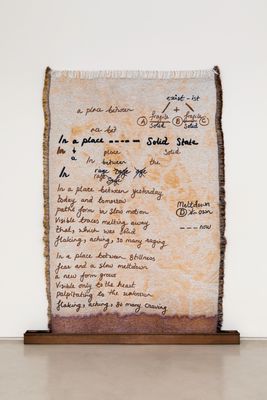 exist - ist
+
a place between
fragile fragile
A solid B solid C
nce bet
In a place ------ Solid State
In a place Solid
a In between the
In rage rage
rage
In a place between yesterday
today and tomorrow
paths form in slow motion
Visible traces melting away
that, which was solid
flaking, aching, so many raging
Meltdown
--- now
In a place between stillness
fear and a slow meltdown
a new form grows
Visible only to the heart
palpitating to the unknown
flaking, aching, so many craving